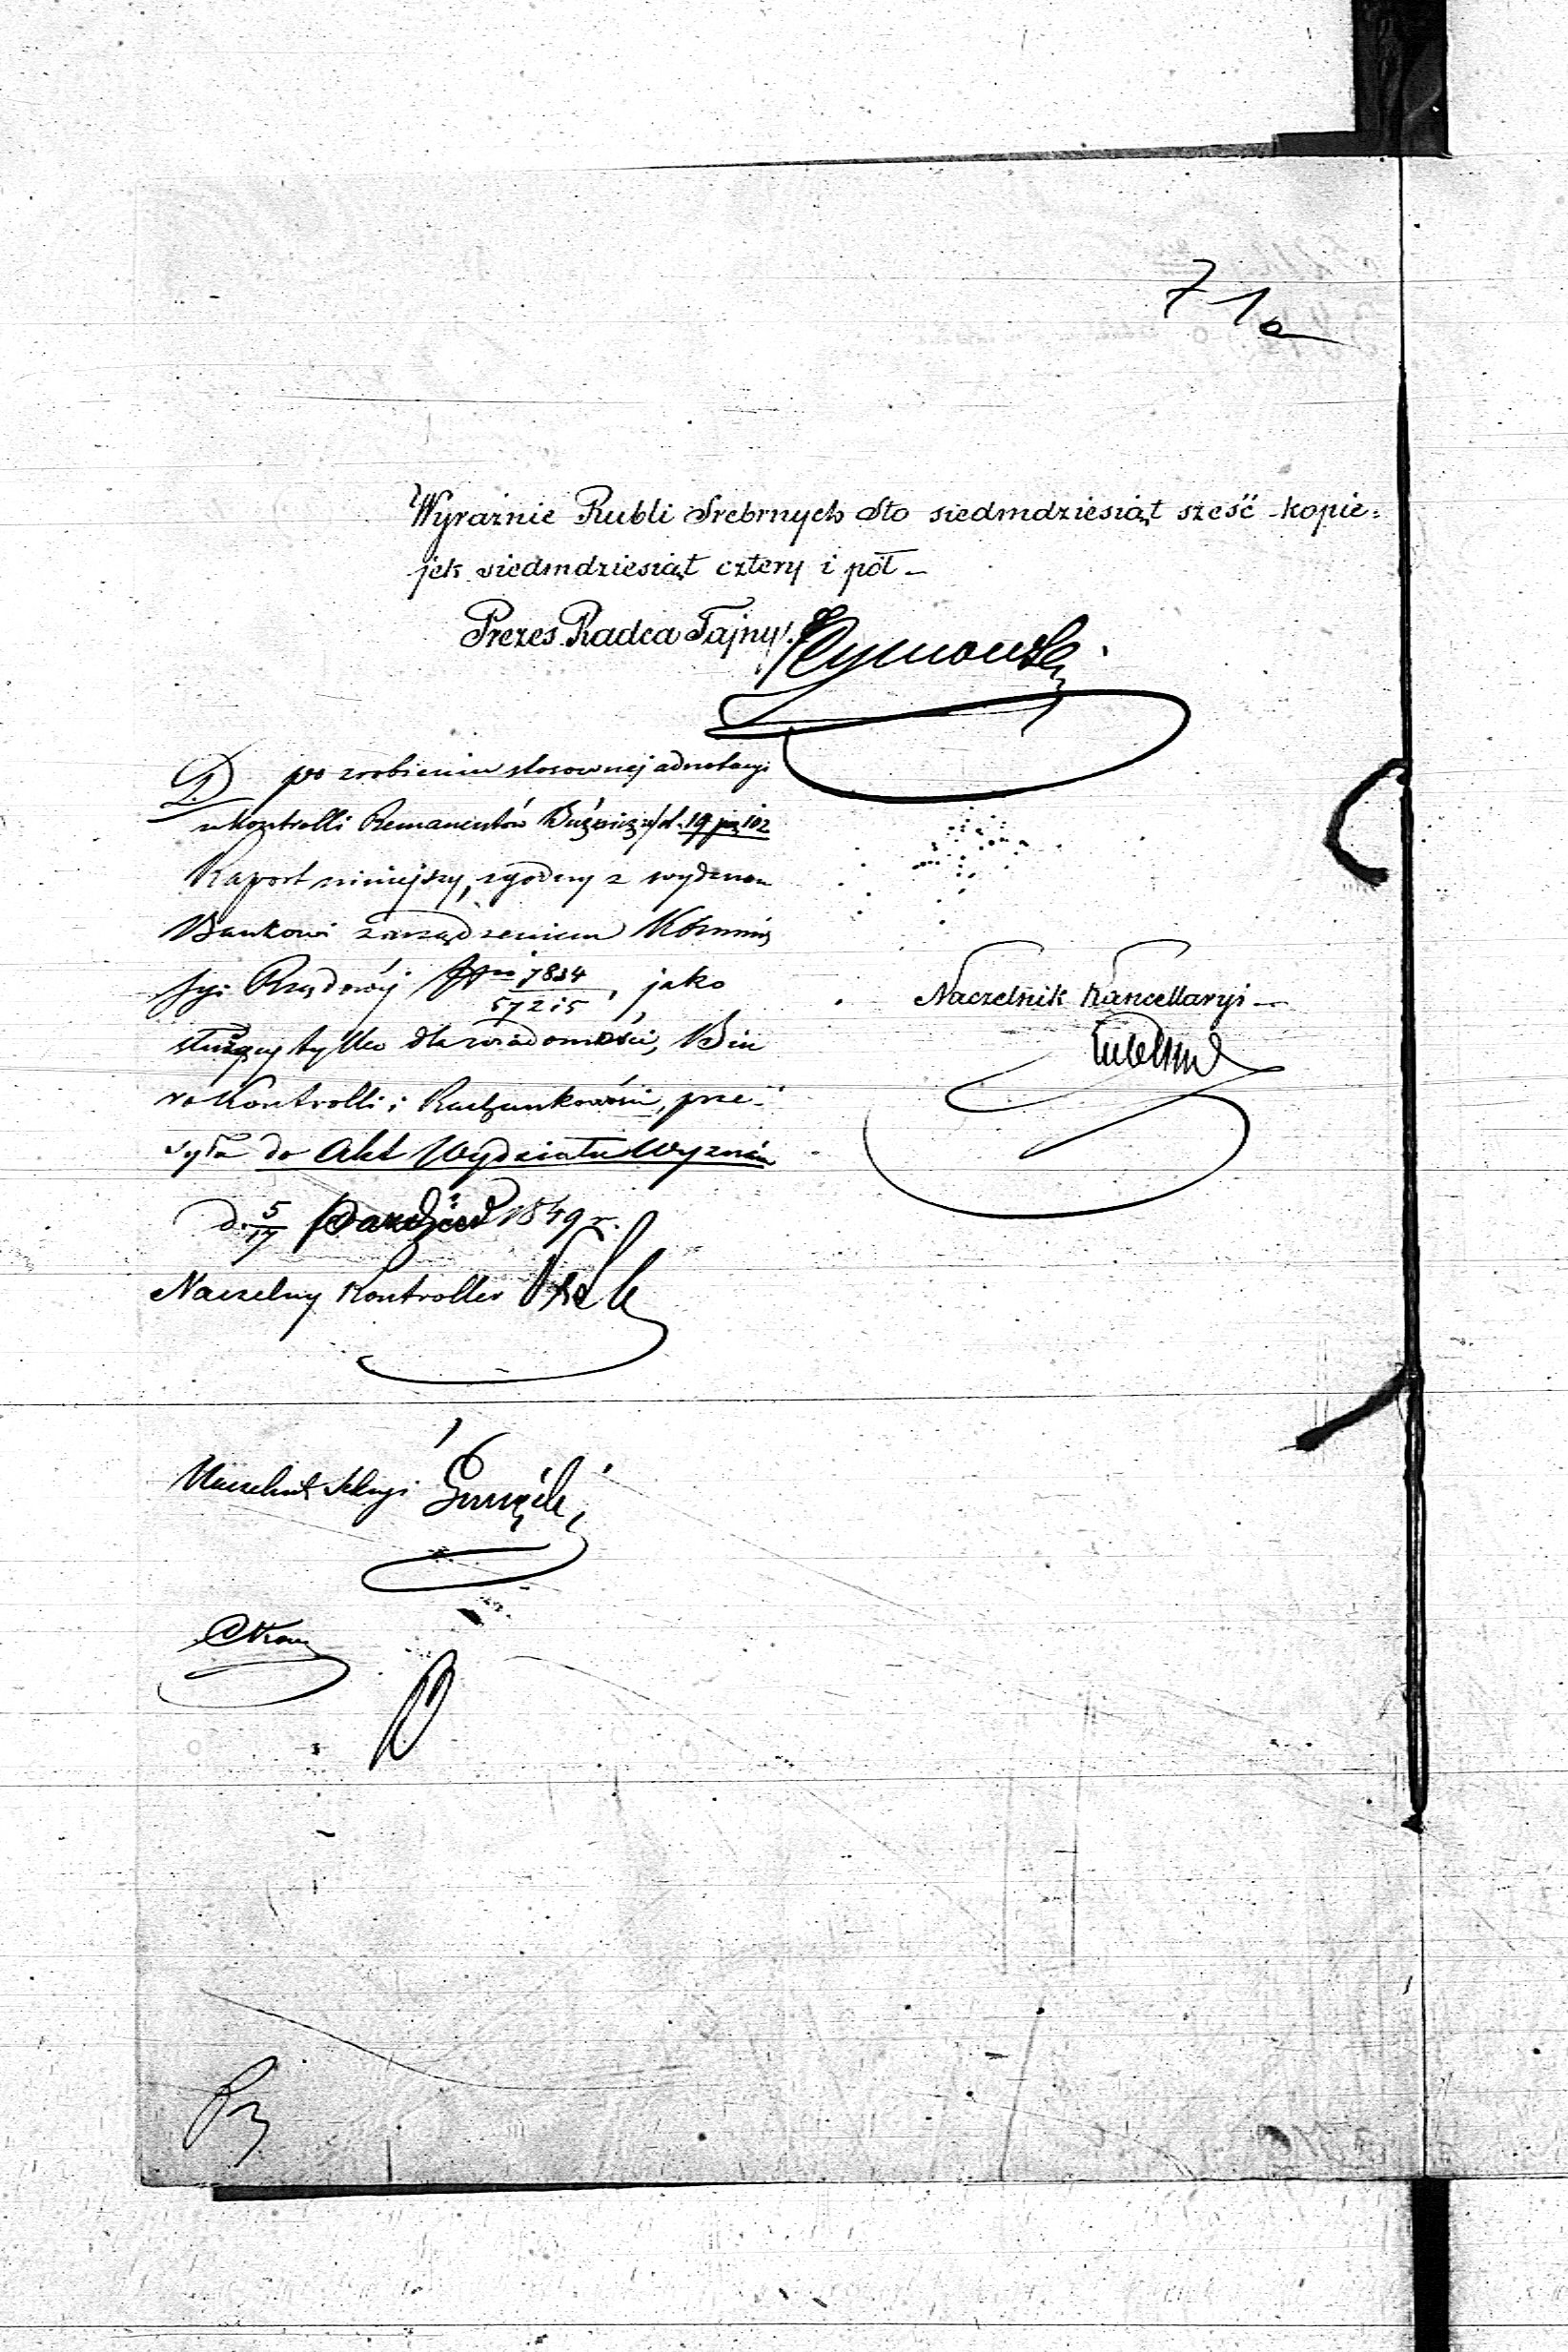 71a
Wyraźnie Rubli Srebrnych Sto siedmdziesiąt sześć kopie=
jek siedmdziesiąt cztery i pół —
Prezes Radca Tajny
po zrobieniu stosownej adnotacyi
w Kontrolli Remanentów 19 102
Raport niniejszy, zgodny z wydanem
Bankowi zarządzeniem Kommis
syi Rządowéj 7834/57215, jako
służący tylko dla wiadomości, Biu
ro Kontrolli i Rachunkowości, prze=
syła do Akt Wydziału Wyznań
d. 5/17 Paździer 1849 r.
Naczelny Kontroller
Naczelnik Kancellaryi —
Naczelnik Sekcyi